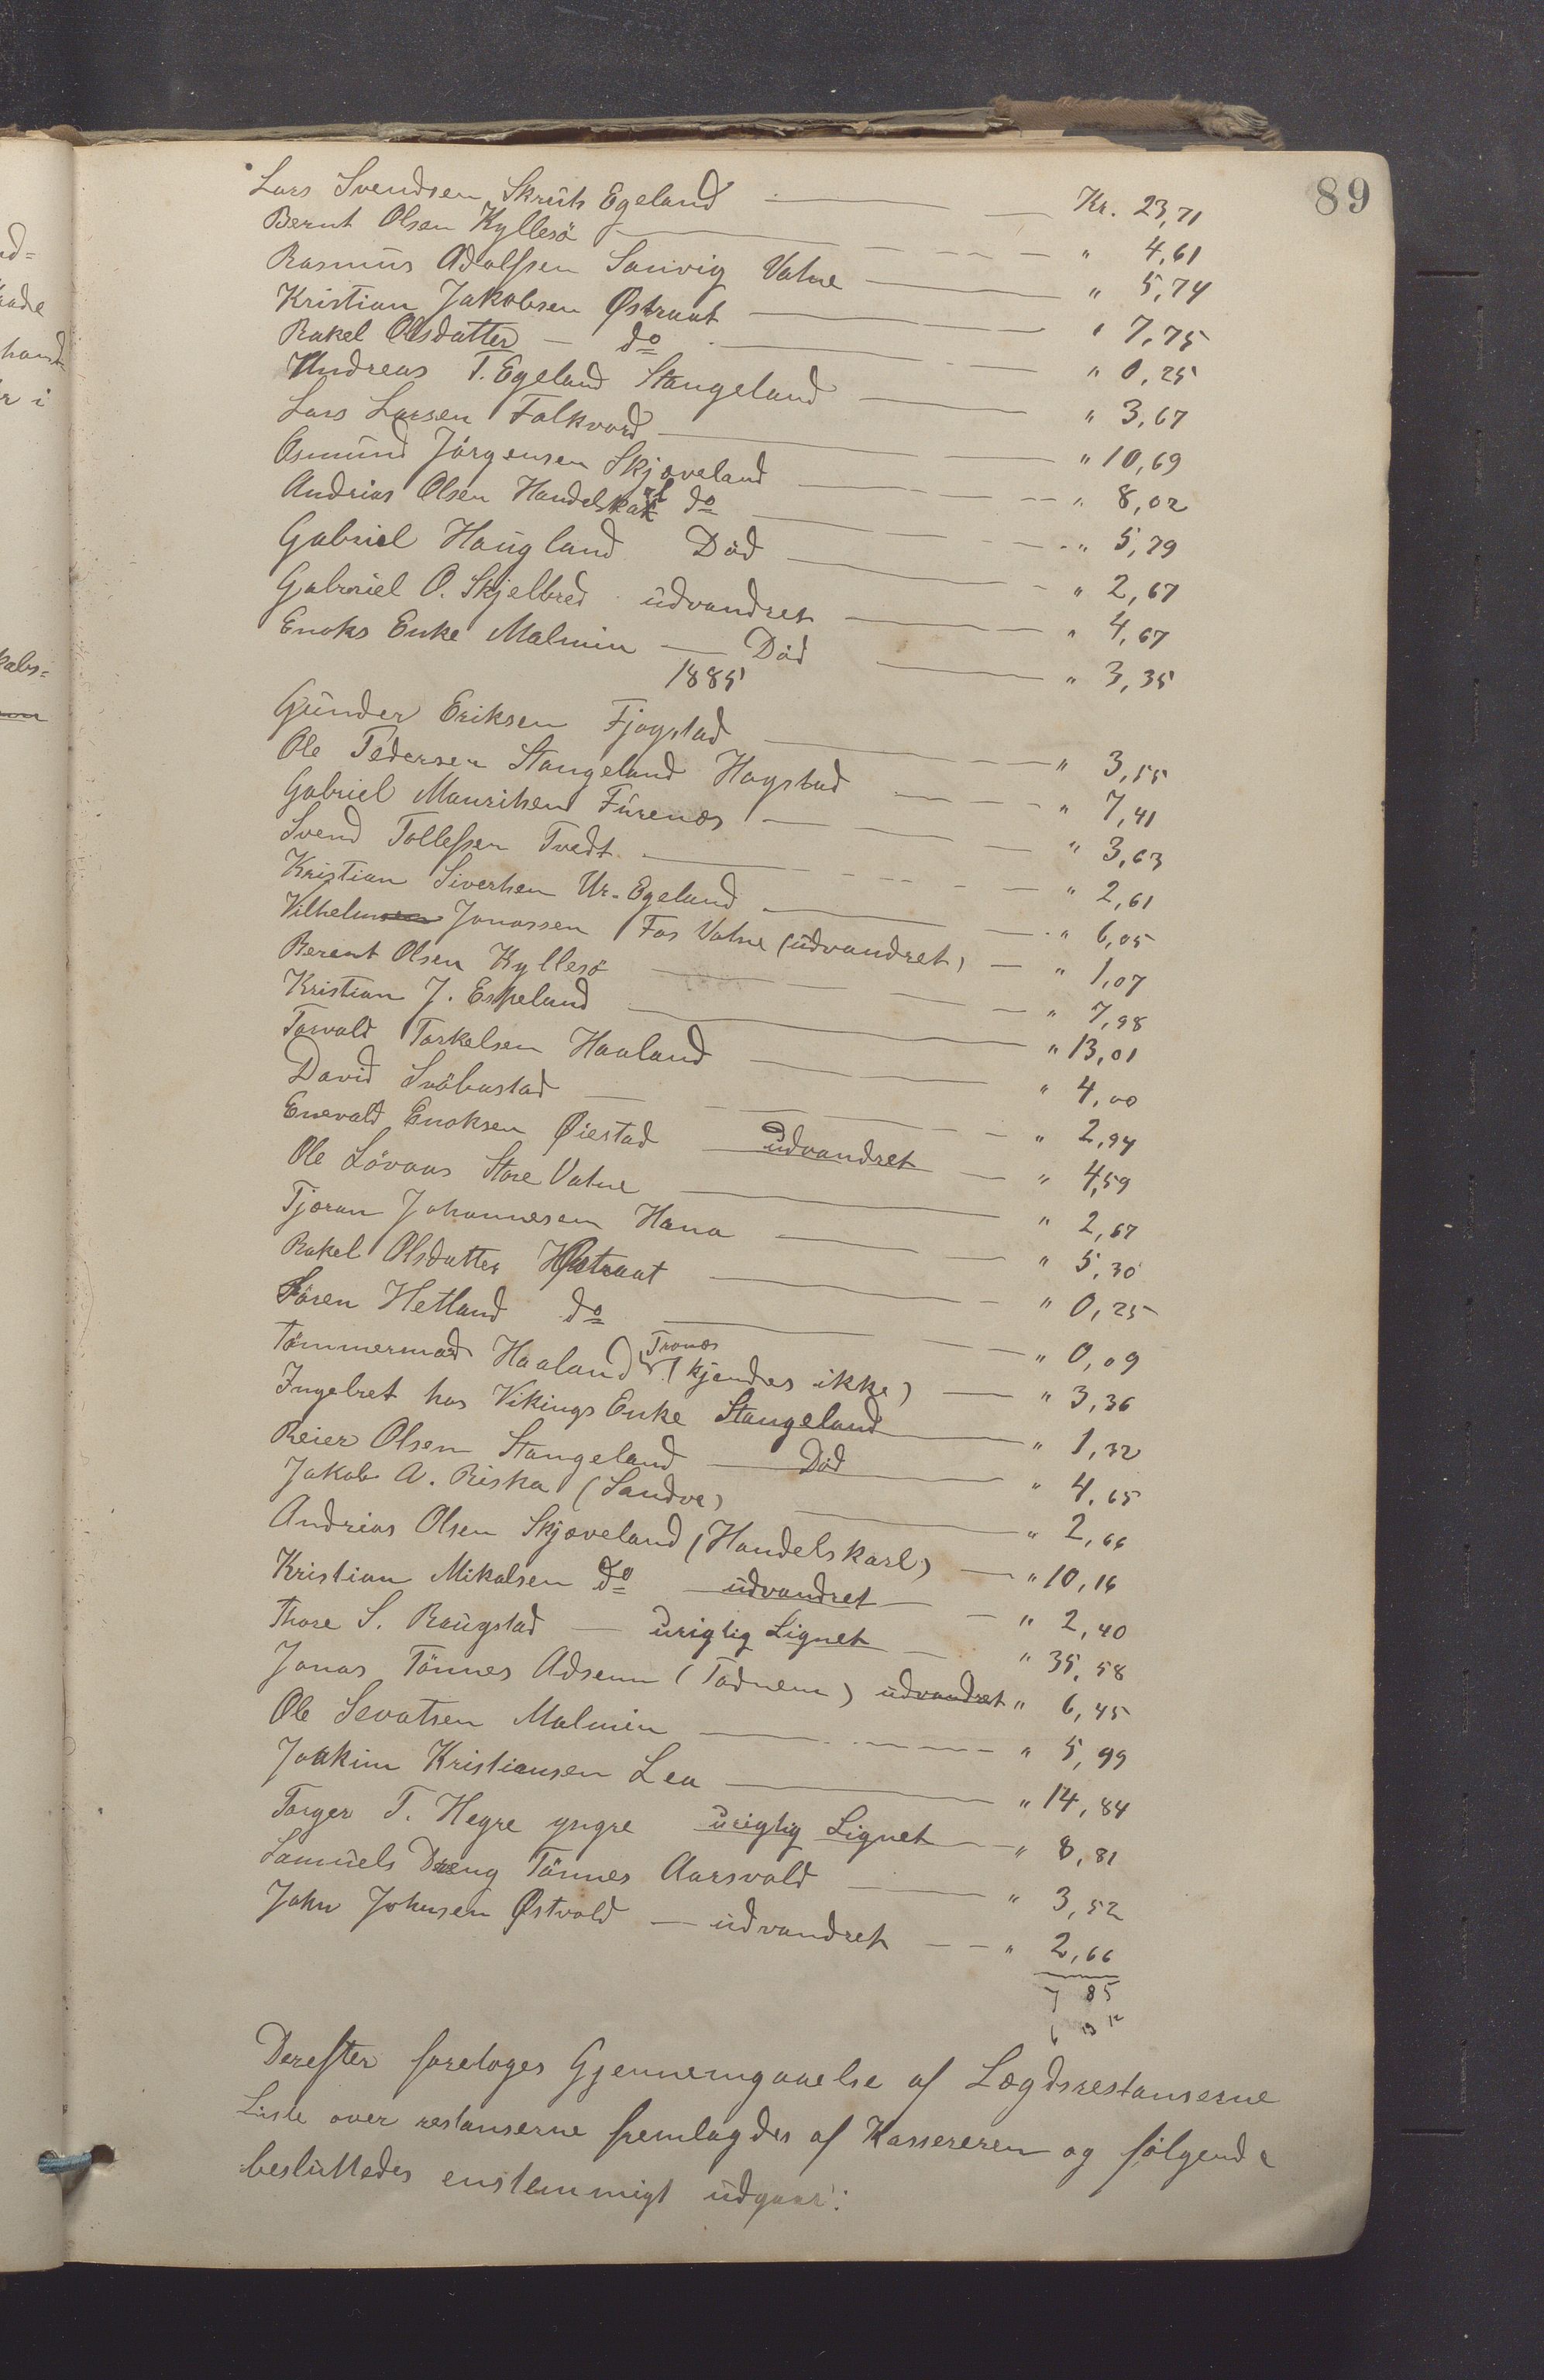 89
Lars Svendsen Skruts Egeland — Kr. 23,71
Bernt Olsen Kyllesö — " 4,61
Rasmus Adolfsen Sanvig Vatne — " 5,74
Kristian Jakobsen Østraat — " 7,75
Rakel Olsdatter — do — " 0,25
Andreas T. Egeland Stangeland — " 3,67
Lars Larsen Folkvord — " 10,69
Osmund Jörgensen Skjæveland — " 8,02
Andrias Olsen Handelskarl do — " 5,79
Gabriel Haugland Död — " 2,67
Gabriel O. Skjelbred udvandret — " 4,67
Enoks Enke Malmin — Död — " 3,35
1885
Gunder Eriksen Fjogstad — " 3,55
Ole Pedersen Stangeland Hogstad — " 7,41
Gabriel Mauritsen Furenes — " 3,63
Svend Tollefsen Tvedt — " 2,61
Kristian Sivertsen Ur. Egeland — " 6,05
Vilhelm Jonassen Fos Vatne (udvandret) — " 1,07
Berent Olsen Kyllesö — " 7,98
Kristian J. Espeland — " 13,01
Torvald Torkelsen Haaland — " 4,00
David Svöbustad — " 2,94
Enevald Enoksen Øiestad udvandret — " 4,59
Ole Lövaas Store Vatne — " 2,67
Tjøran Johannesen Hana — " 5,30
Rakel Olsdatter Østraat — " 0,25
Sören Hetland do — " 0,09
Tömmermand Haaland Tronæs (kjendes ikke) — " 3,36
Ingebret hos Vikings Enke Stangeland — " 1,32
Reier Olsen Stangeland — Död — " 4,65
Jakob A. Riska (Sandve) — " 2,66
Andrias Olsen Skjæveland (Handelskarl) — " 10,16
Kristian Mikalsen do — udvandret — " 2,40
Thore S. Raugstad — urigtig Lignet — " 35,58
Jonas Tönnes Adsenn (Todnem) udvandret " 6,45
Ole Sevatsen Malmin — " 5,99
Joakim Kristiansen Lea — " 14,84
Torger T. Hegre yngre urigtig Lignet — " 8,81
Samuels Dreng Tönnes Aarsvold — " 3,52
John Johnsen Østvold — udvandret — " 2,66
7 85
Derefter foretoges Gjennemgaaelse af Lægdsrestanserne
Liste over restanserne fremlagdes af Kassereren og fölgende
besluttedes enstemmigt udgaar: